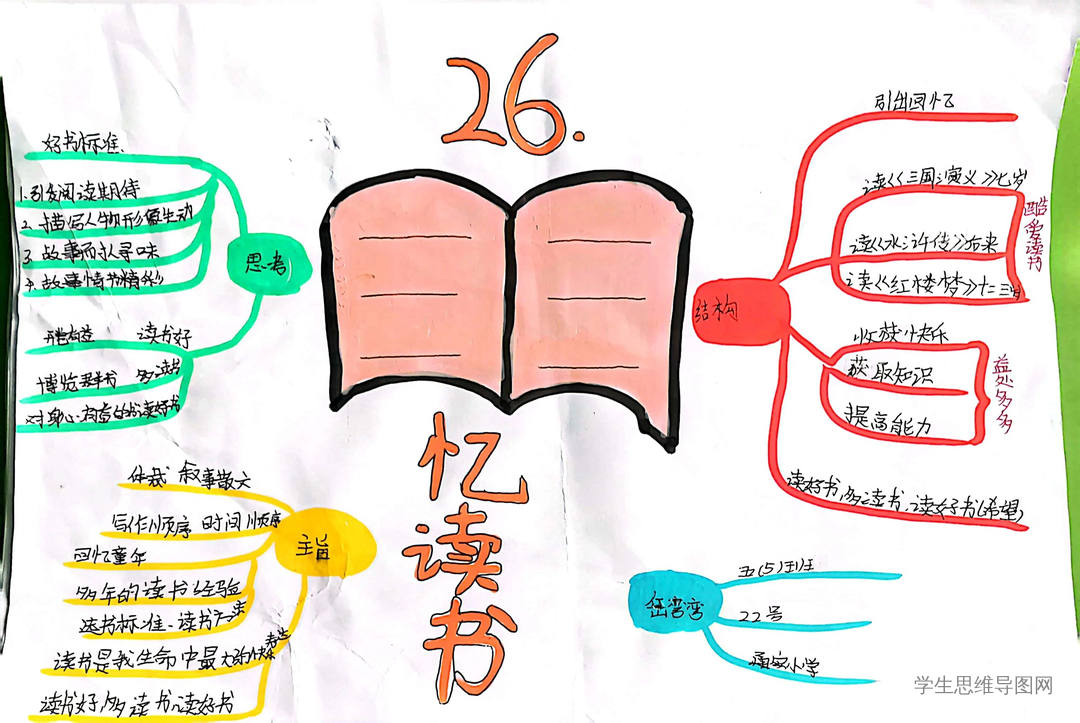 26.
忆读书
思考
好书标准.
1.引发阅读期待
2.描写人物形象生动
3.故事而扒寻味
4.故事情书精彩
开卷有益 读书好
博览群书 多读书
对身心有益的书读好书
主旨
体裁 叙事散文
写作顺序 时间顺序
回忆童年
多年的读书经验
选书标准、读书方法
读书是我生命中最大的快乐
读书好,多读书、读好书
结构
引出回忆
读《《三国演义》》七岁
读《《水浒传》》后来
读《《红楼梦》》十二三岁
酷爱读书
收获快乐
获取知识
提高能力
益处多多
读好书,多读书、读好书(希望)
五(5)班
22号
小学
学生思维导图网